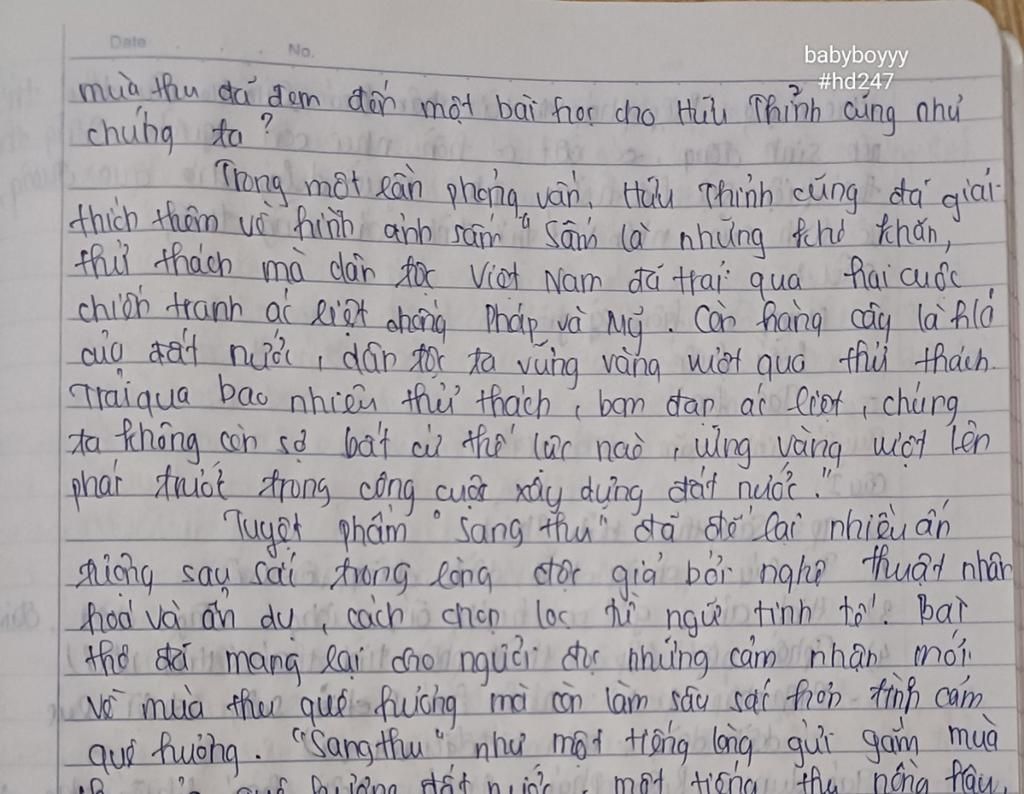 Date No.
babyboyyy
#hd247
mùa thu đã đem đến một bài học cho Hữu Thỉnh cũng như
chúng ta?
Trong một lần phỏng vấn, Hữu Thỉnh cũng đã giải
thích thêm về hình ảnh sấm "Sấm là những khó khăn,
thử thách mà dân tộc Việt Nam đã trải qua hai cuộc
chiến tranh ác liệt chống Pháp và Mỹ. Còn hàng cây là
của đất nước, dân tộc ta vững vàng vượt qua thử thách.
Trải qua bao nhiêu thử thách, bom đạn ác liệt, chúng
ta không còn sợ bất cứ thế lực nào, ửng vàng vượt lên
phát trước trong công cuộc xây dựng đất nước."
Tuyệt phẩm "Sang thu" đã để lại nhiều ấn
sâu sắc trong lòng độc giả bởi nghệ thuật nhân
hoá và ẩn dụ, cách chọn lọc từ ngữ tinh tế. Bài
thơ đã mang lại cho người đọc những cảm nhận mới
về mùa thu quê hương mà còn làm sâu sắc hơn tình cảm
quê hương. "Sang thu" như một tiếng lòng gửi gắm mùa
quê hương đất nước, một tiếng thu nồng hậu,